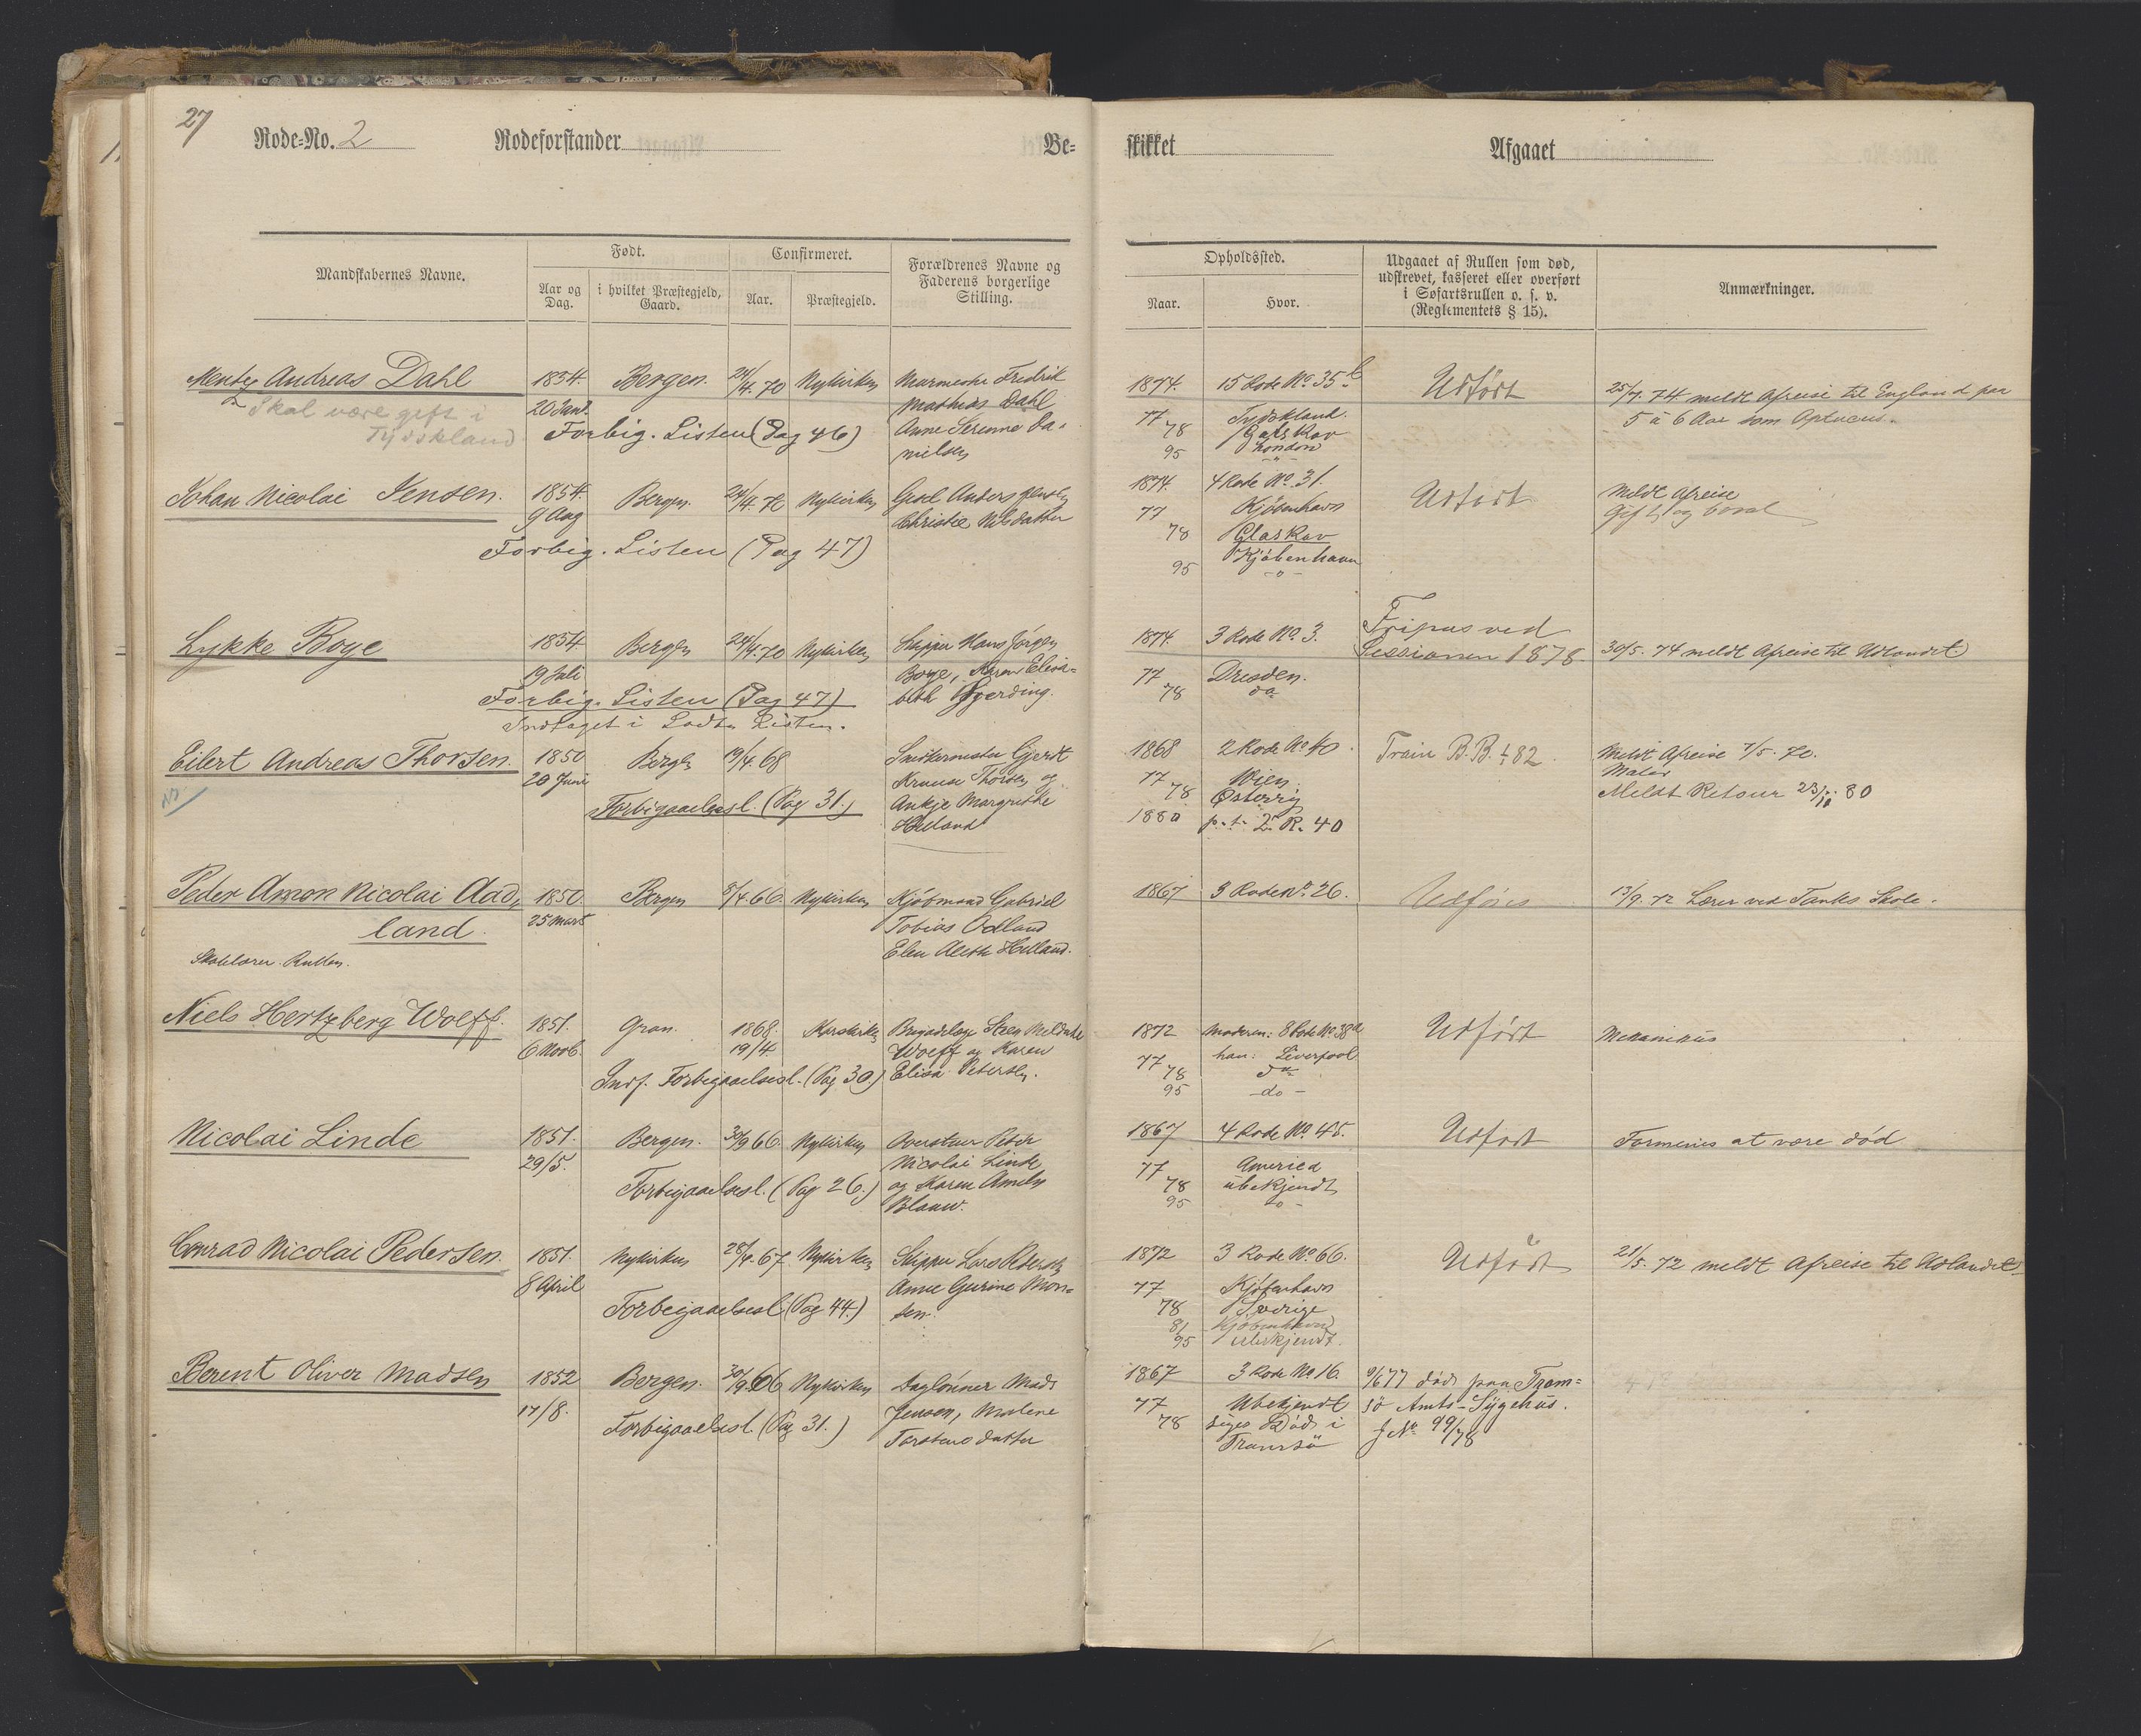 27
Rode=No. 2 Rodeforstander Be= skikket Afgaaet
Mandskabernes Navne.
Født.
Aar og Dag.
i hvilket Præstegjeld, Gaard.
Confirmeret.
Aar.
Præstegjeld.
Forældrenes Navne og
Faderens borgerlige
Stilling.
Opholdssted.
Naar.
Hvor.
Udgaaet af Rullen som død,
udskrevet, kasseret eller overført
i Søfartsrullen o. s. v.
(Reglementets § 15).
Anmærkninger.
Mentz Andreas Dahl 1854. Bergen. 24/4.70 Nykirken Fredrik
Skal være gift i 20 Mathias Dahl
Tydskland Forbig. Listen (Pag 46) Anne Serenne Da=
nielsen
1874. 15 Rode No. 35 b Udført 25/7. 74 meldt Afreise til England paa
77 Tydskland. 5 à 6 Aar som
78 Glaskov
95 London
-"-
Johan Nicolai Jensen. 1854. Bergen. 24/4.70 Nykirken Anders Jensen
9 Aug Christie Nilsdatter
Forbig. Listen (Pag 47)
1874. 4 Rode No. 31. Udført Meldt Afreise
77 Kjøbenhavn Gift og
78 Glaskov
95 Kjøbenhavn
-"-
Lykke Boye 1854 Bergen 24/4.70 Nykirken Skipper Hans Jørgen
19 Juli Boye, Karen Elisa=
Forbig. Listen (Pag 47) beth Gjerding.
Indtaget i Lodtn Listen.
1874. 3 Rode No. 3. Fripas ved
Sessionen 1878. 30/5. 74 meldt Afreise til Udlandet
77 Dresden.
78 do
Eilert Andreas Thorsen. 1850 Bergen 19/4.68 Snedkermester Gjerdt
20 Juni Thorsen og
Forbigaaelsesl. (Pag 31.) Ankje Margrethe
Helland
1868 2 Rode No. 40. Train B.B. 82. Meldt Afreise 7/5. 70.
77 Wien. Maler
78 Østerrig Meldt Retour 23/10. 80
1880 p.t. 2. R. 40
Peder Amon Nicolai Aad= 1850. Bergen 8/4.66. Nykirken Kjøbmand Gabriel
land. 25 Marts Tobias Odland
Skolelærer Rullen. Elen Aleth Helland.
1867 3 Rode No. 26. Udføres 13/9. 72 Lærer ved Tanks Skole.
Niels Hertzberg Wolff. 1851. Gran. 1868. Korskirken Brigadelæge Steen
6 Novb. 19/4 Wolff og Karen
Indf. Forbigaaelsesl. (Pag 30) Elisa Petersen.
1872 Moderen: 8 Rode No. 38 a Udført Mekanikus
77 han: Liverpool
78 do
95 -do-
Nicolai Linde 1851. Bergen. 30/9 66. Nykirken Peter
29/5. Nicolai Linde
Forbigaaelsesl. (Pag 26.) og Karen
Blauw.
1867 4 Rode No. 45. Udført Formenes at være død
77 America
78 ubekjendt
95 -"-
Conrad Nicolai Pedersen. 1851. Nykirken 28/4.67 Nykirken Skipper Lars Pedersen
8 April Anne Gurine Mon=
Forbeigaaelsesl (Pag 44.) sen.
1872 3 Rode No. 66. Udført 21/5. 72 meldt Afreise til Udlandet
77 Kjøbenhavn
78 Sverige
81 Kjøbenhavn
95 ubekjendt.
Berent Oliver Madsen 1852 Bergen. 30/9.66 Nykirken Daglønner Mads
17/8. Jensen, Malene
Forbigaaelsesl. (Pag 31.) Torstensdatter
1867 3 Rode No 16. 9/6 77 død paa Trom=
77 Ubekjendt sö Amts-Sygehus.
78 siges Død i J No 99/78
Tromsö